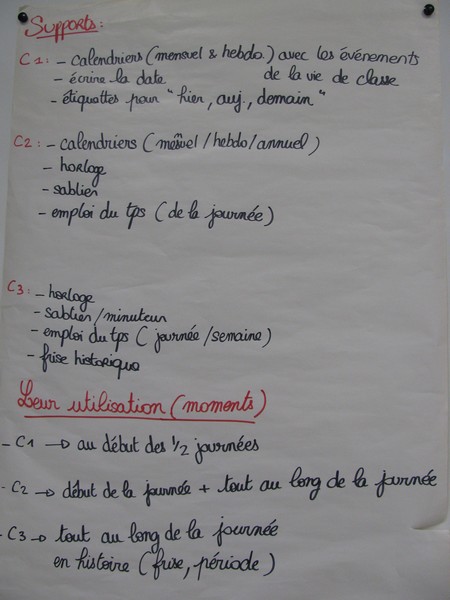 Supports:
C1: - calendriers (mensuel & hebdo.) avec les événements
- écrire la date de la vie de classe
- étiquettes pour "hier, auj., demain"
C2: - calendriers (mensuel/hebdo/annuel)
- horloge
- sablier
- emploi du tps (de la journée)
C3: - horloge
- sablier/minuteur
- emploi du tps (journée/semaine)
- frise historique
Leur utilisation (moments)
- C1 → au début des 1/2 journées
- C2 → début de la journée + tout au long de la journée
- C3 → tout au long de la journée
en histoire (frise, période)